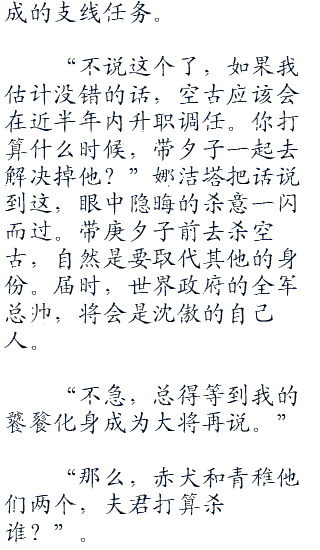 成的支线任务。
“不说这个了，如果我
估计没错的话，空古应该会
在近半年内升职调任。你打
算什么时候，带夕子一起去
解决掉他？”娜洁塔把话说
到这，眼中隐晦的杀意一闪
而过。带庚夕子前去杀空
古，自然是要取代其他的身
份。届时，世界政府的全军
总帅，将会是沈傲的自己
人。
“不急，总得等到我的
饕餮化身成为大将再说。”
“那么，赤犬和青稚他
们两个，夫君打算杀
谁？”。